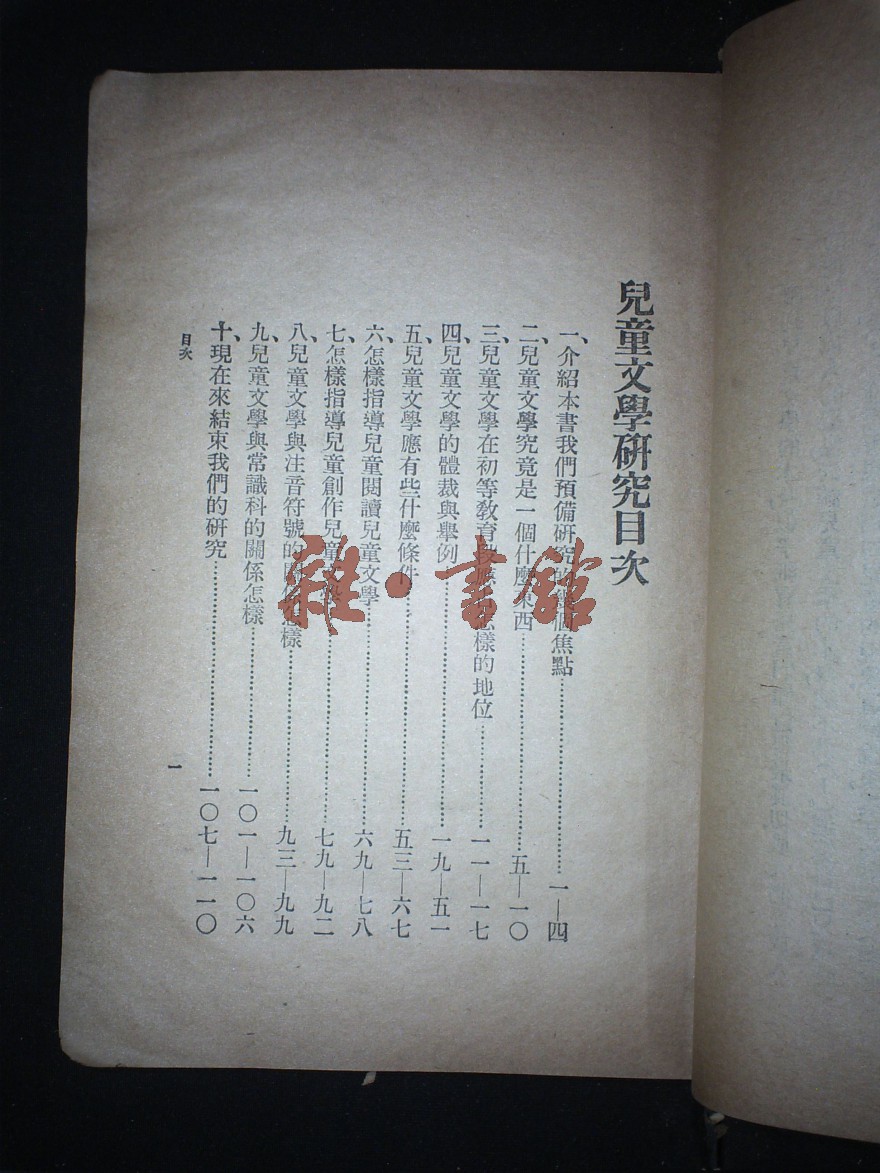 兒童文學硏究目次
一、介紹本書我們預備硏究的幾個焦點…………一—四
二、兒童文學究竟是一個什麼東西…………五—一〇
三、兒童文學在初等敎育段應 怎樣的地位…………一一—一七
四、兒童文學的體裁與舉例…………一九—五一
五、兒童文學應有些什麼條件…………五三—六七
六、怎樣指導兒童閱讀兒童文學…………六九—七八
七、怎樣指導兒童創作兒童文…………七九—九二
八、兒童文學與注音符號的關係怎樣…………九三—九九
九、兒童文學與常識科的關係怎樣…………一〇一—一〇六
十、現在來結束我們的硏究…………一〇七—一一〇
目次
一
雜·書館